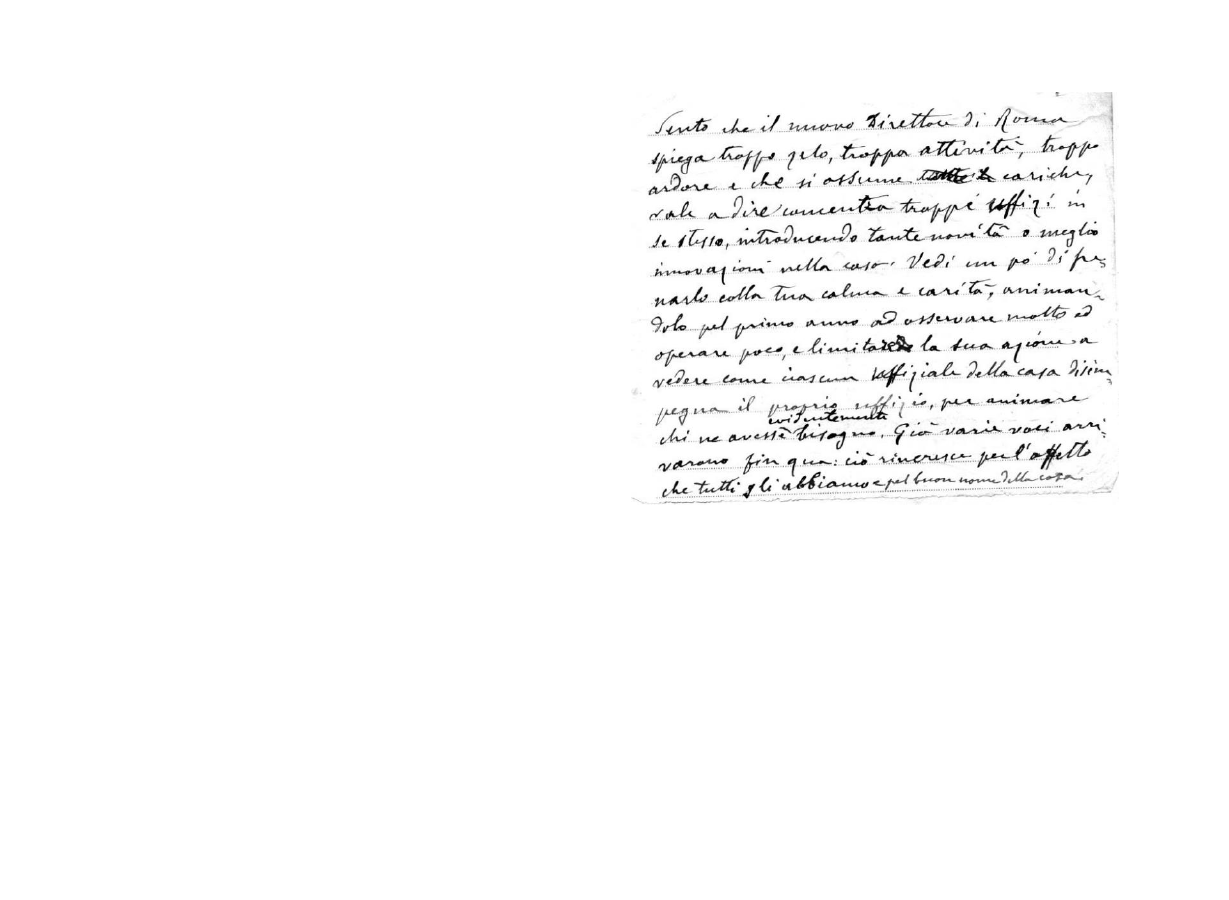 Sento che il nuovo Direttore di Roma
spiega troppo zelo, troppa attività, troppo
ardore e che si assume cariche,
vale a dire concentra troppi uffizi in
se stesso, introducendo tante novità o meglio
innovazioni nella casa. Vedi un pó di fre-
narlo colla tua calma e carità, animan-
dolo pel primo anno ad osservare molto ed
operare poco, e limitando la sua azione a
vedere come ciascun uffiziale della casa disim-
pegna il proprio uffizio, per animare
evidentemente
chi ne avesse bisogno. Già varie voci arri-
varono fin qua: ciò rincresce per l'affetto
che tutti gli abbiamo e pel buon nome della casa.